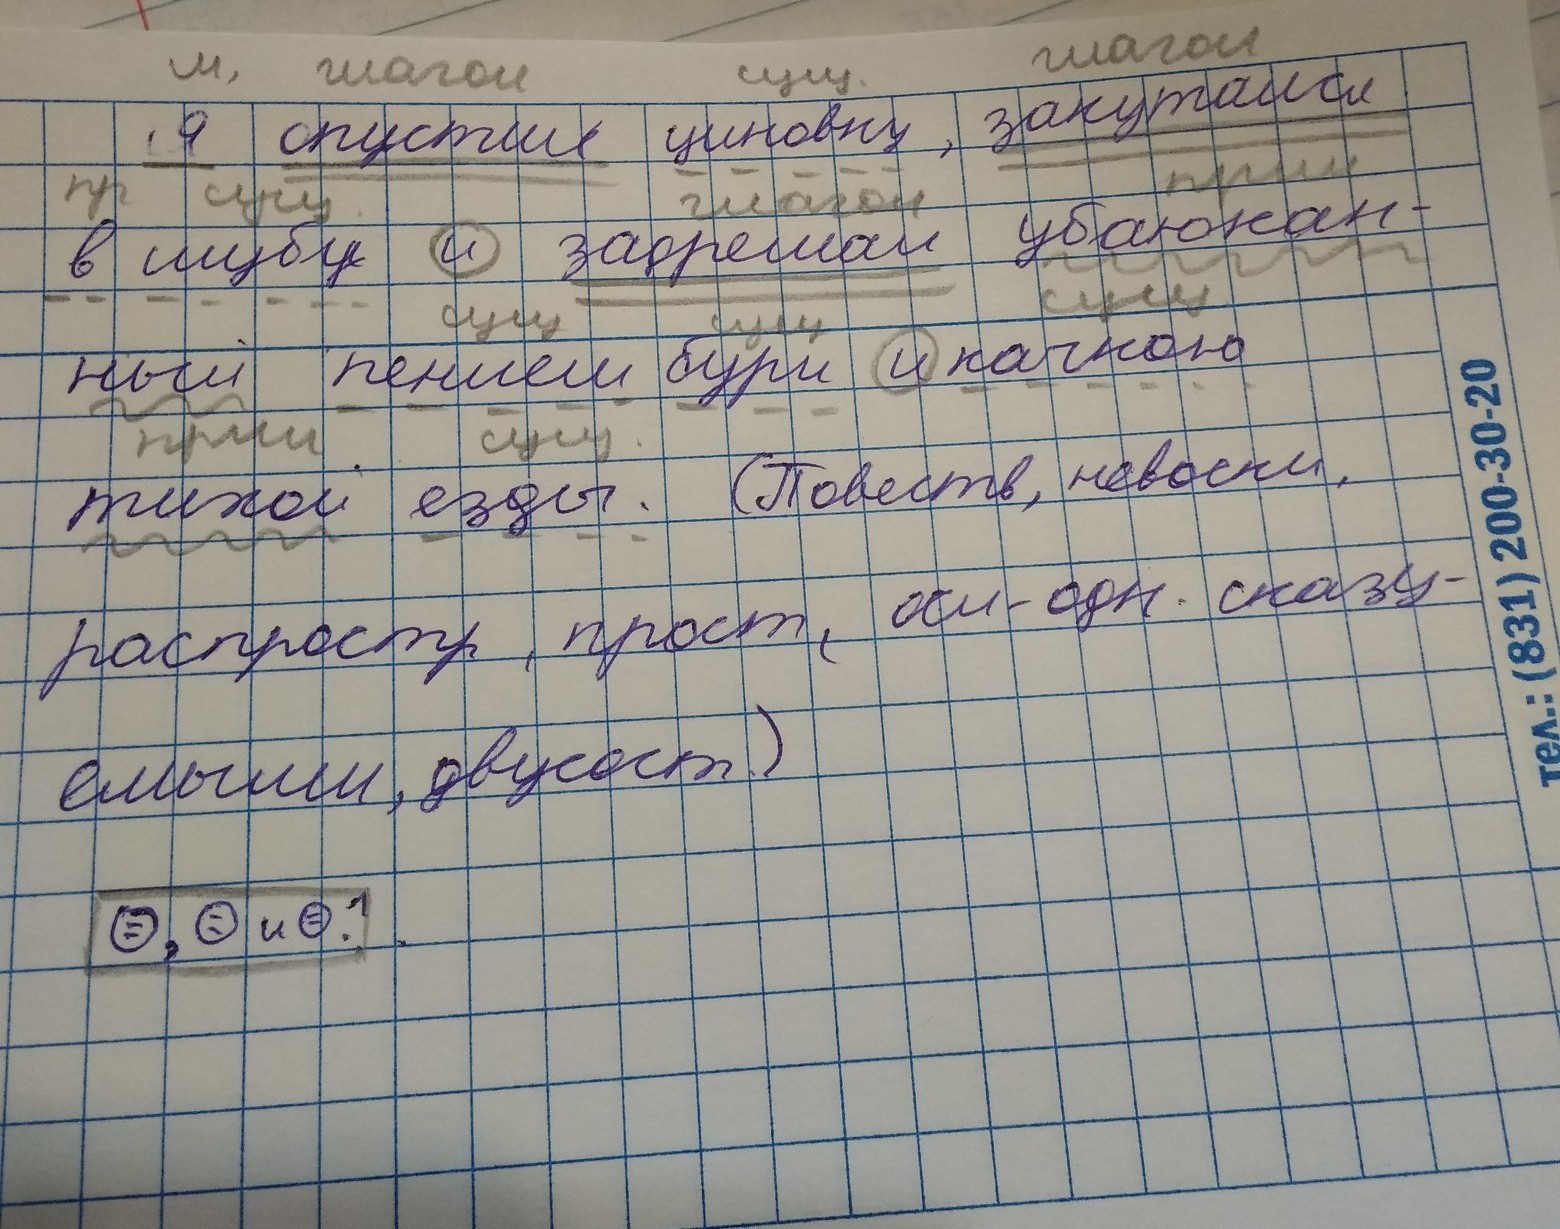 м, глагол сущ. глагол
Я опустил циновку, закутался
пр сущ. глагол прил
в шубу и задремал убаюкан-
сущ сущ сущ
ный пением бури и качкою
прил сущ.
тихой езды. (Повеств, невоскл,
распростр, прост, осл-одн. сказу-
емыми, двусост.)
, и .
тел.: (831) 200-30-20